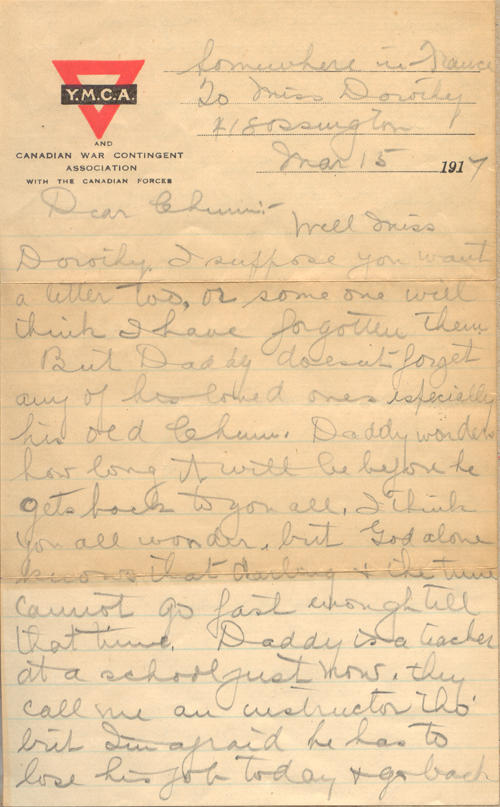 Somewhere in France
Y.M.C.A.
To Miss Dorothy
Ossington
AND
CANADIAN WAR CONTINGENT
ASSOCIATION
WITH THE CANADIAN FORCES
Mar 15 1917
Dear Chum:-
Well Miss
Dorothy, I suppose you want
a letter too, or some one will
think I have forgotten them.
But Daddy doesn't forget
any of his loved ones especially
his old Chum. Daddy wonders
how long it will be before he
gets back to you all, I think
you all wonder, but God alone
knows that darling & the time
cannot go fast enough till
that time. Daddy is a teacher
at a school just now, they
call me an instructor tho'
but I'm afraid he has to
lose his job today & go back